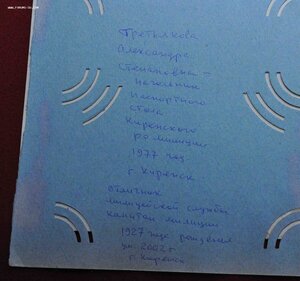 Третьякова
Александра
Степановна –
начальник
паспортного
стола
Киренского
ро милиции
1977 год
г. Киренск
отличник
милицейской службы
капитан милиции
1927 года рождения
ум. 2002 г
г. Киренск